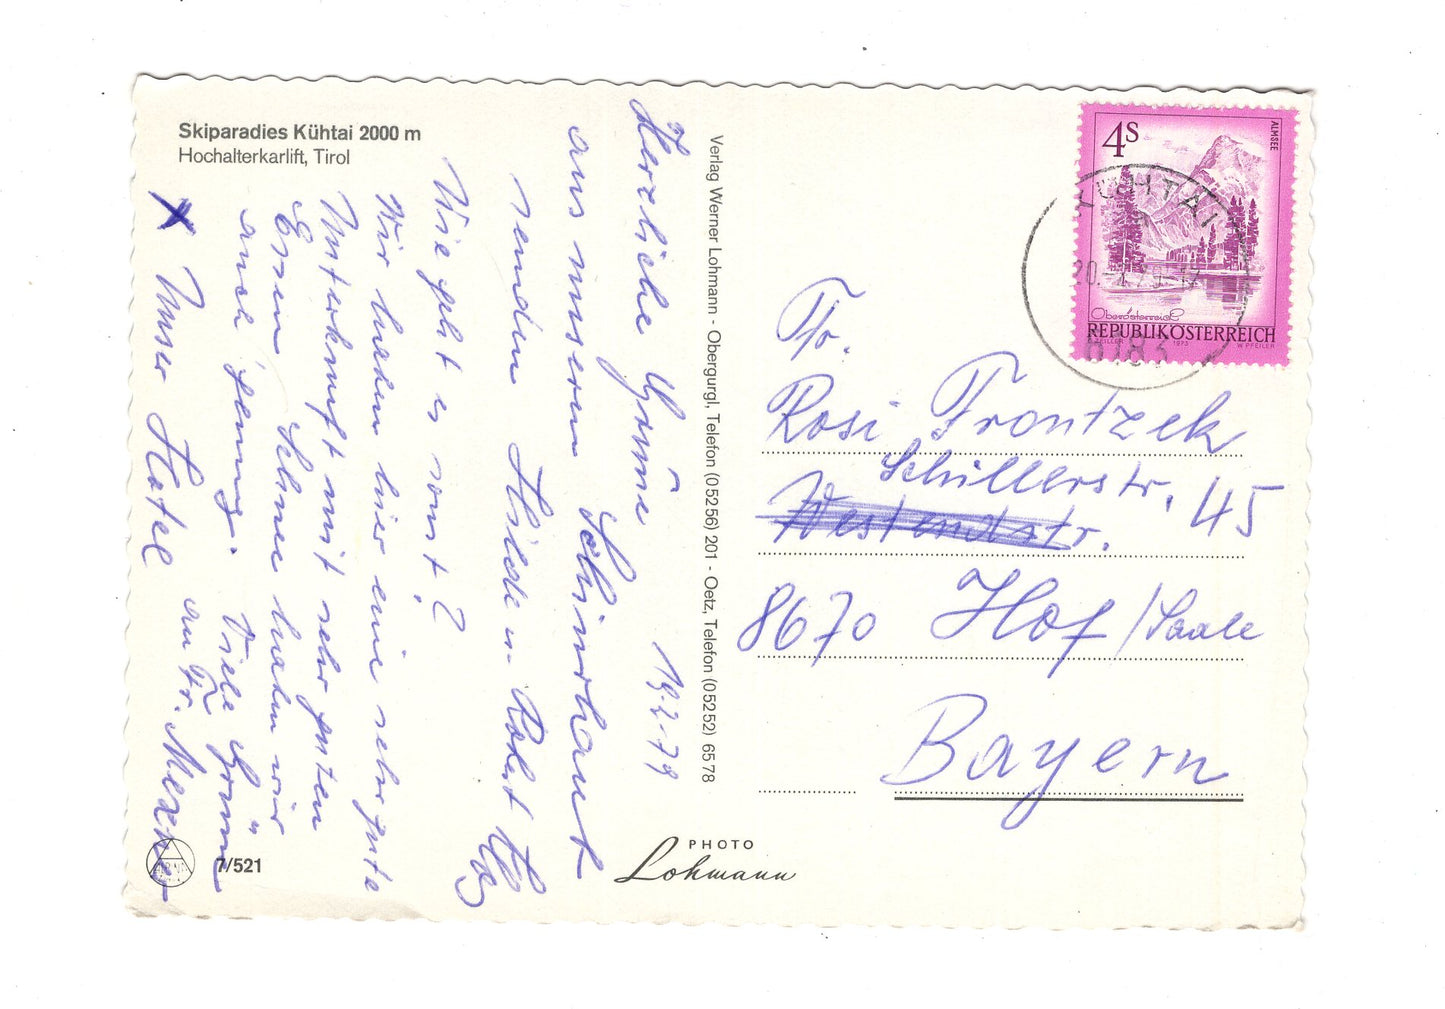 Skiparadies Kühtai 2000 m
Hochalterkarlift, Tirol
19.2.79
Herzliche Grüße
aus unserem Schiurlaub
senden Hilde u. Robert
Wie geht es sonst?
Wir haben hier eine sehr gute
Unterkunft mit sehr guten
Essen. Schnee haben wir
auch genug. Viele Grüße
an Fr. Mexner
x Unser Hotel
7/521
Verlag Werner Lohmann - Obergurgl, Telefon (05256) 201 - Oetz, Telefon (05252) 6578
PHOTO
Lohmann
4S
ALMSEE
Oberösterreich
REPUBLIK ÖSTERREICH
1973
W. PFEILER
KÜHTAI
6183
Fr.
Rosi Frontzek
Schillerstr. 45
Westendstr.
8670 Hof/Saale
Bayern